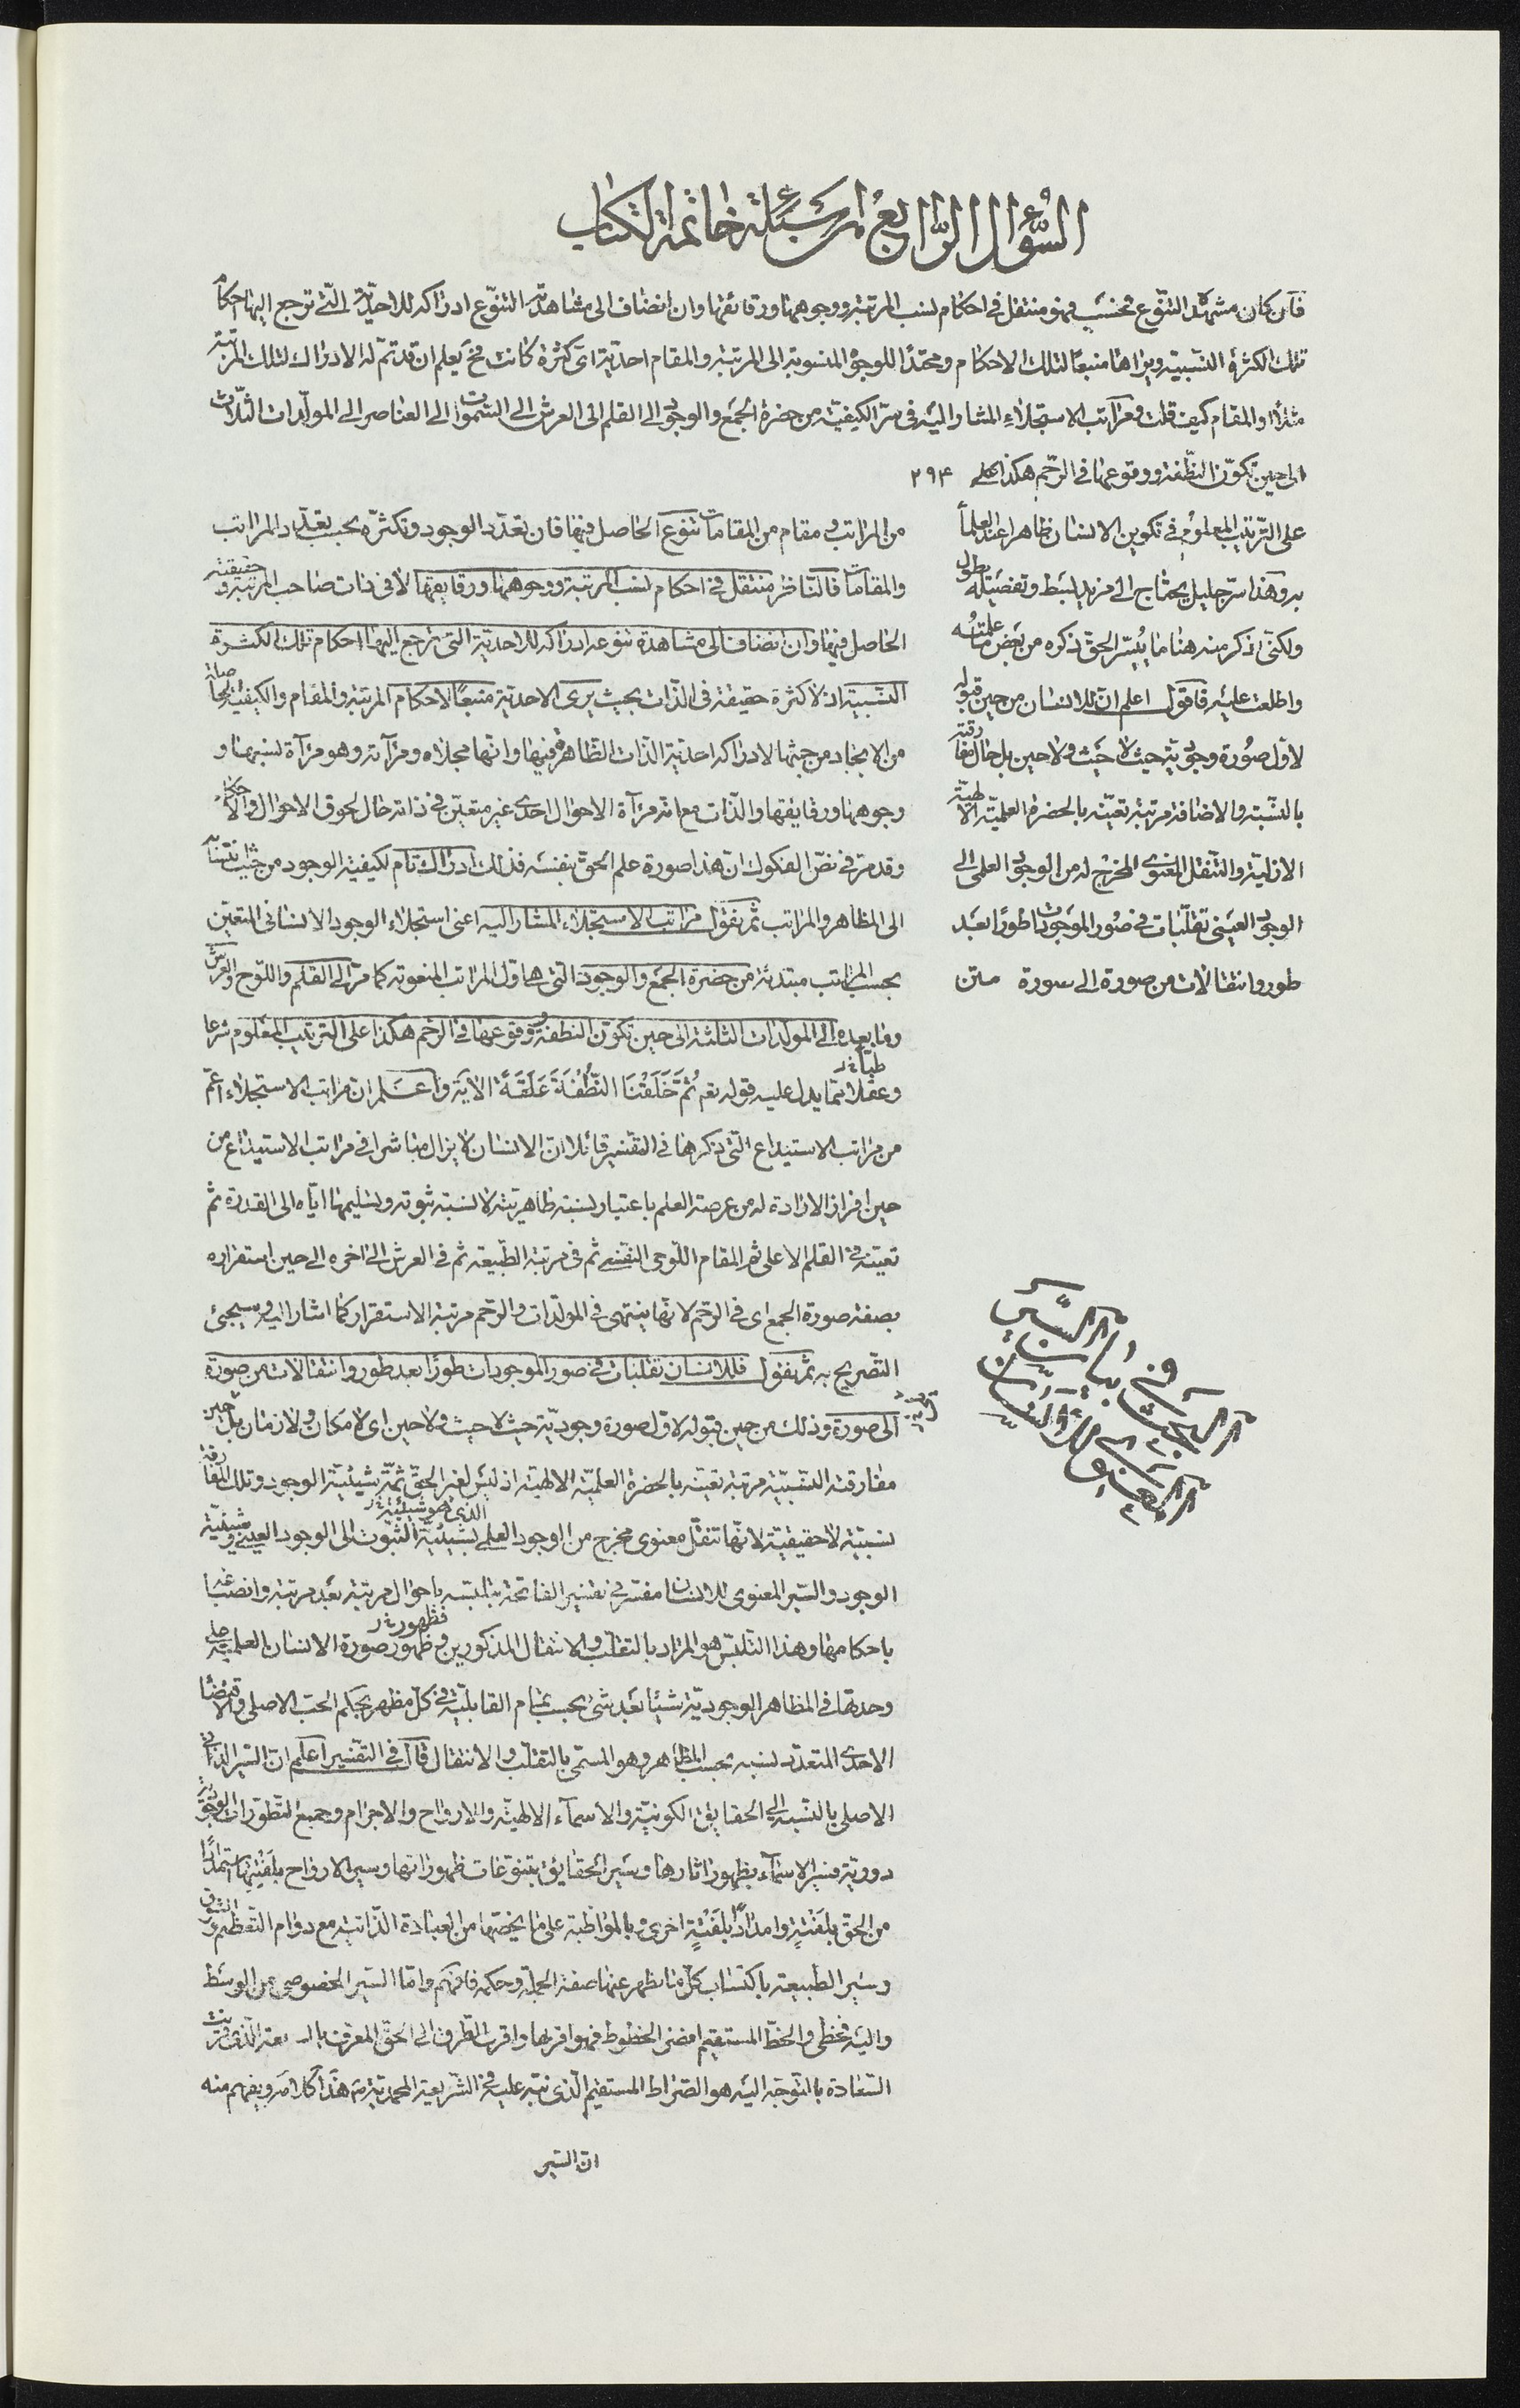 السؤال الرابع من اسئلة خاتمة الكتاب
فان كان مشهد التنوع فحسب فهو منتقل في احكام نسب المرتبة ووجوهها ورقائقها وان انضاف الى مشاهدته التنوع ادراكه للاحدية التي ترجع اليها احكام
تلك الكثرة النسبية ويراها منبعا لتلك الاحكام ومحتدا للوجوه المنسوبة الى المرتبة والمقام احدية اي كثرة كانت فح يعلم ان قد تم له الادراك لتلك المرتبة
مثلا او المقام كيف قلت ومراتب الاستجلاء المشار اليه في سر الكيفية من حضرة الجمع والوجود الى القلم الى العرش الى السموات الى العناصر الى المولدات الثلاث
الى حين تكون النطفة ووقوعها في الرحم هكذا على ۲۹۴
على الترتيب المعلوم في تكوين الانسان ظاهرا عند العلماء
به وهذا سر جليل يحتاج الى مزيد بسط وتفصيله يطول
ولكني اذكر منه هنا ما يُيسّر الحق ذكره من بعض ما علمته
واطلعت عليه فاقول اعلم ان للانسان من حين قبوله
لاول صورة وجودية حيث لا حيث ولا حين بل حال مفارقته
بالنسبة والاضافة مرتبة تعينه بالحضرة العلمية الالهية
الازلية والتنقل المعنوي المخرج له من الوجود العلمي الى
الوجود العيني تقلبات في صور الموجودات طورا بعد
طور وانتقالات من صورة الى صورة متن
من المراتب ومقام من المقامات تنوع الحاصل فيها فان تعدد الوجود وتكثره بحسب تعدد المراتب
والمقامات فالناظر منتقل في احكام نسب المرتبة ووجوهها ورقايقها لا في ذات صاحب المرتبة وحقيقته
الحاصل فيها وان انضاف الى مشاهدة تنوعه ادراكه للاحدية التي ترجع اليها احكام تلك الكثرة
النسبية اذ لا كثرة حقيقة في الذات بحيث يرى الاحدية منبعا لاحكام المرتبة والمقام والكيفية الحاصلة
من الايجاد من حيثها لادراكه احدية الذات الظاهرة فيها وانها مجلاه ومرآته وهو مرآة نسبها و
وجوهها ورقايقها والذات مع انه مرآة الاحوال احدي غير متعين في ذاته حال لحوق الاحوال والاحكام
وقد مر في نص الفكوك ان هذا صورة علم الحق بنفسه فذلك ادراك تام لكيفية الوجود من حيث نسبته
الى المظاهر والمراتب ثم نقول مراتب الاستجلاء المشار اليه اعنى استجلاء الوجود الانساني المتعين
بحسب المراتب مبتدئة من حضرة الجمع والوجود التي هي اول المراتب المنعوتة كما مر الى القلم واللوح والعرش
وما بعده الى المولدات الثلثة الى حين تكون النطفة ووقوعها في الرحم هكذا على الترتيب المعلوم شرعا
وعقلا مما يدل عليه قوله تع ثُمَّ خَلَقْنَا النُّطْفَةَ عَلَقَةً الآية واعلم ان مراتب الاستجلاء اعم
من مراتب الاستيداع التي ذكرها في التفسير قائلا ان الانسان لا يزال مباشرا في مراتب الاستيداع من
حين افراز الارادة له من عرصة العلم باعتبار نسبة ظاهريته لا نسبة ثبوته وتسليمها اياه الى القدرة ثم
تعينه في القلم الاعلى ثم المقام اللوحي النفسي ثم في مرتبة الطبيعة ثم في العرش الى اخره الى حين استقراره
بصفة صورة الجمع اى في الرحم لانها ينتهى في المولدات والرحم مرتبة الاستقرار كما اشار اليه وسيجئ
التصريح به ثم نقول فللانسان تقلبات في صور الموجودات طورا بعد طور وانتقالات من صورة
الى صورة وذلك من حين قبوله لاول صورة وجودية حيث لا حيث ولا حين اى لا مكان ولا زمان بل حين
مفارقته النسبية مرتبة تعينه بالحضرة العلمية الالهية اذ ليس لغير الحق ثمة شيئية الوجود وتلك المفارقة
نسبية لا حقيقية لانها تنقل معنوى مخرج من الوجود العلمي بشيئية الثبوت الى الوجود العيني وشيئية
الوجود والسير المعنوى للانسان مفسر في تفسير الفاتحة بتلبسه باحوال مرتبة بعد مرتبة وانصباغه
باحكامها وهذا التلبس هو المراد بالتقلب والانتقال المذكورين وظهور صورة الانسان العلمية على
وحدتها في المظاهر الوجودية شيئا بعد شئ بحسب تمام القابلية في كل مظهر بحكم الحب الاصلي والاقتضاء
الاحدى المتعدد نسبه بحسب المظاهر وهو المسمى بالتقلب والانتقال قال في التفسير اعلم ان السير الذاتي
الاصلي بالنسبة الى الحقايق الكونية والاسماء الالهية والارواح والاجرام وجميع التطورات الوجودية
دورية فسير الاسماء بظهور اثارها وسير الحقايق بتنوعات ظهوراتها وسير الارواح بلفتتها استمدادا
من الحق بلفتة وامدادا بلفتة اخرى وبالمواظبة على ما يخصها من العبادة الذاتية مع دوام التعظيم والشوق
وسير الطبيعة باكتساب كل ما يظهر عنها صفة الجملة وحكمه فافهم واما السير الخصوصي من الوسط
واليه فخطي والخط المستقيم اقصر الخطوط فهو اقربها واقرب الطرق الى الحق المعرف الذي قرنت
السعادة بالتوجه اليه هو الصراط المستقيم الذي نبه عليه في الشريعة المحمدية تم هذا كلامه ويفهم منه
ان السير
البحث في بيان السير
المعنوي للانسان